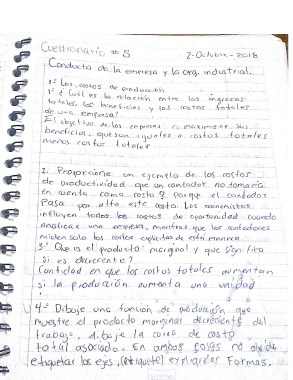 Cuestionario # 5
2-Octubre-2018
Conducta de la empresa y la org. industrial.
Los costos de producción
1: ¿Cuál es la relación entre los ingresos
totales, los beneficios y los costos totales
de una empresa?
El objetivo de las empresas es maximizar sus
beneficios, que son iguales a costos totales
menos costos totales
2. Proporcione un ejemplo de los costos
de productividad que un contador no tomaría
en cuenta como costo? Porque el contador
Pasa por alto este costo. Los economistas
influyen todos los costos de oportunidad cuando
analizan una empresa, mientras que los contadores
miden solo los costos explícitos de esta manera
3: Que es el producto marginal y que significa
si es decreciente?
Cantidad en que los costos totales aumentan
si la producción aumenta una unidad
4: Dibuje una función de producción que
muestre el producto marginal decreciente del
trabajo, dibuje la curva de costo
total asociado. En ambos casos no olvide
etiquetar los ejes, (etiquete) explique las Formas.